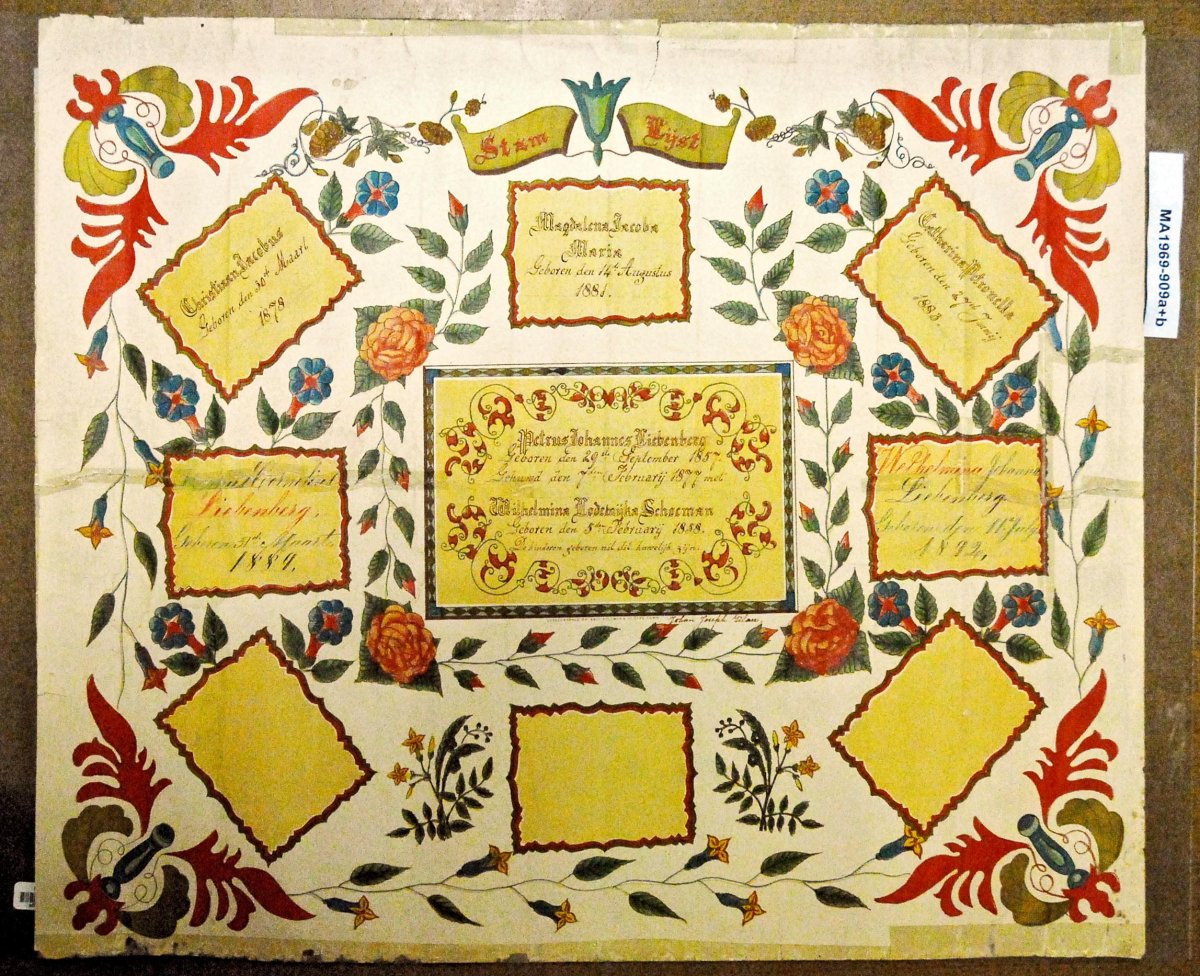 Stam Lyst
Christiaan Jacobus
Geboren den 30st Maart
1879
Magdalena Jacoba
Maria
Geboren den 14de Augustus
1881.
Catharina Petronella
Geboren den 27 Junij
1883.
Petrus Johannes Liebenberg
Geboren den 29ste September 1857
Gehuwd den 7den Februarij 1877 met
Wilhelmina Lodewijka Schoeman
Geboren den 8ste Februarij 1858.
De kinderen geboren uit dit huwelijk zijn.
Johan Joseph
Cornelius
Liebenberg.
Geboren 31ste Maart
1889.
Welhelmina Johanna
Liebenberg.
Geboren den 11de July
1892.
MA1969-909a+b